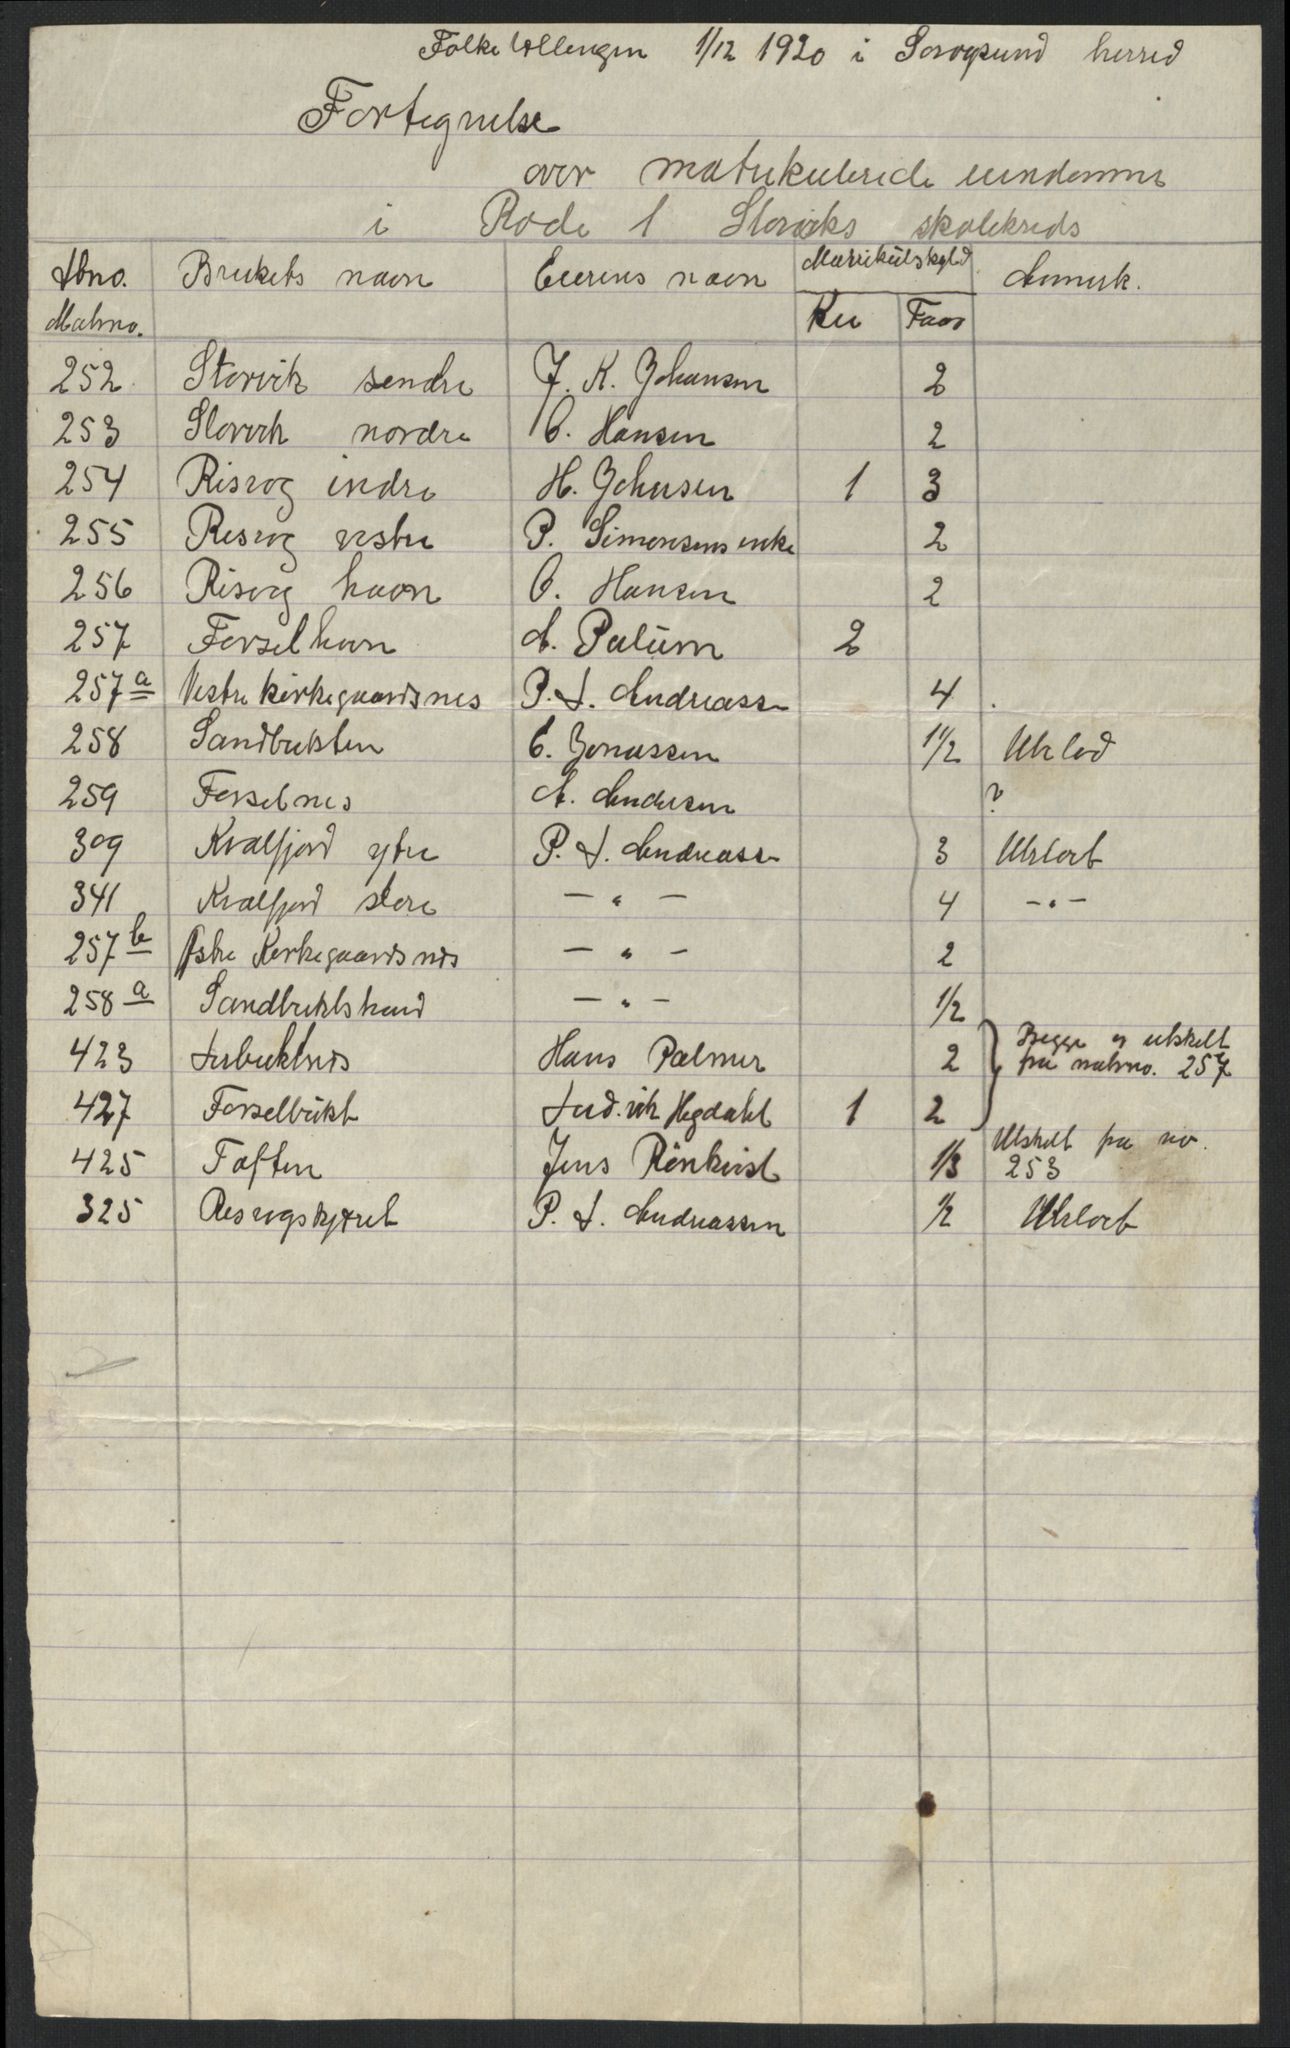 Folketellingen 1/12 1920 i Sørøysund herred
Fortegnelse
over matrikulerede eiendomme
i Rode 1 Storviks skolekreds
Lbno. Brukets navn Eierens navn Matrikulskyld Anmerk.
Matrno. Ku Faar
252 Storvik søndre J. K. Johansen 2
253 Storvik nordre C. Hansen 2
254 Risvåg indre H. Johnsen 1 3
255 Risvåg vestre P. Simonsens enke 2
256 Risvåg havn O. Hansen 2
257 Forsølhavn A. 2
257 a Vestre kirkegaardsnes P. L. Andreassen 4
258 Sandbukten C. Jonassen 1 1/2 Uklod
259 Forsølnes A. Andersen ?
309 Kvalfjord ytre P. L. Andreassen 3 Uklart
341 Kvalfjord store — " — 4 — " —
257 b Østre Kirkegaardsnes — " — 2
258 a Sandbuktstrand — " — 1/2
423 Lerbuktnes Hans Palmer 2 Begge er utskilt
fra matrno. 257
427 Forsølbukt Ludvik Hegdahl 1 2
425 Toften Jens Rönkvist 1/3 Utskilt fra no.
253
325 Risvågskjæret P. L. Andreassen 1/2 Uklart